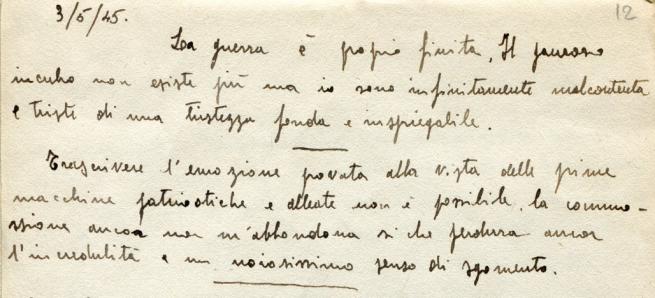 3/5/45. 12
La guerra è propio finita. Il pauroso
incubo non esiste più ma io sono infinitamente malcontenta
e triste di una tristezza fonda e inspiegabile.
Trascrivere l'emozione provata alla vista delle prime
macchine patriottiche e alleate non è possibile, la commo-
zione ancora non m'abbandona sì che perdura ancor
l'incredulità e un noiosissimo senso di sgomento.